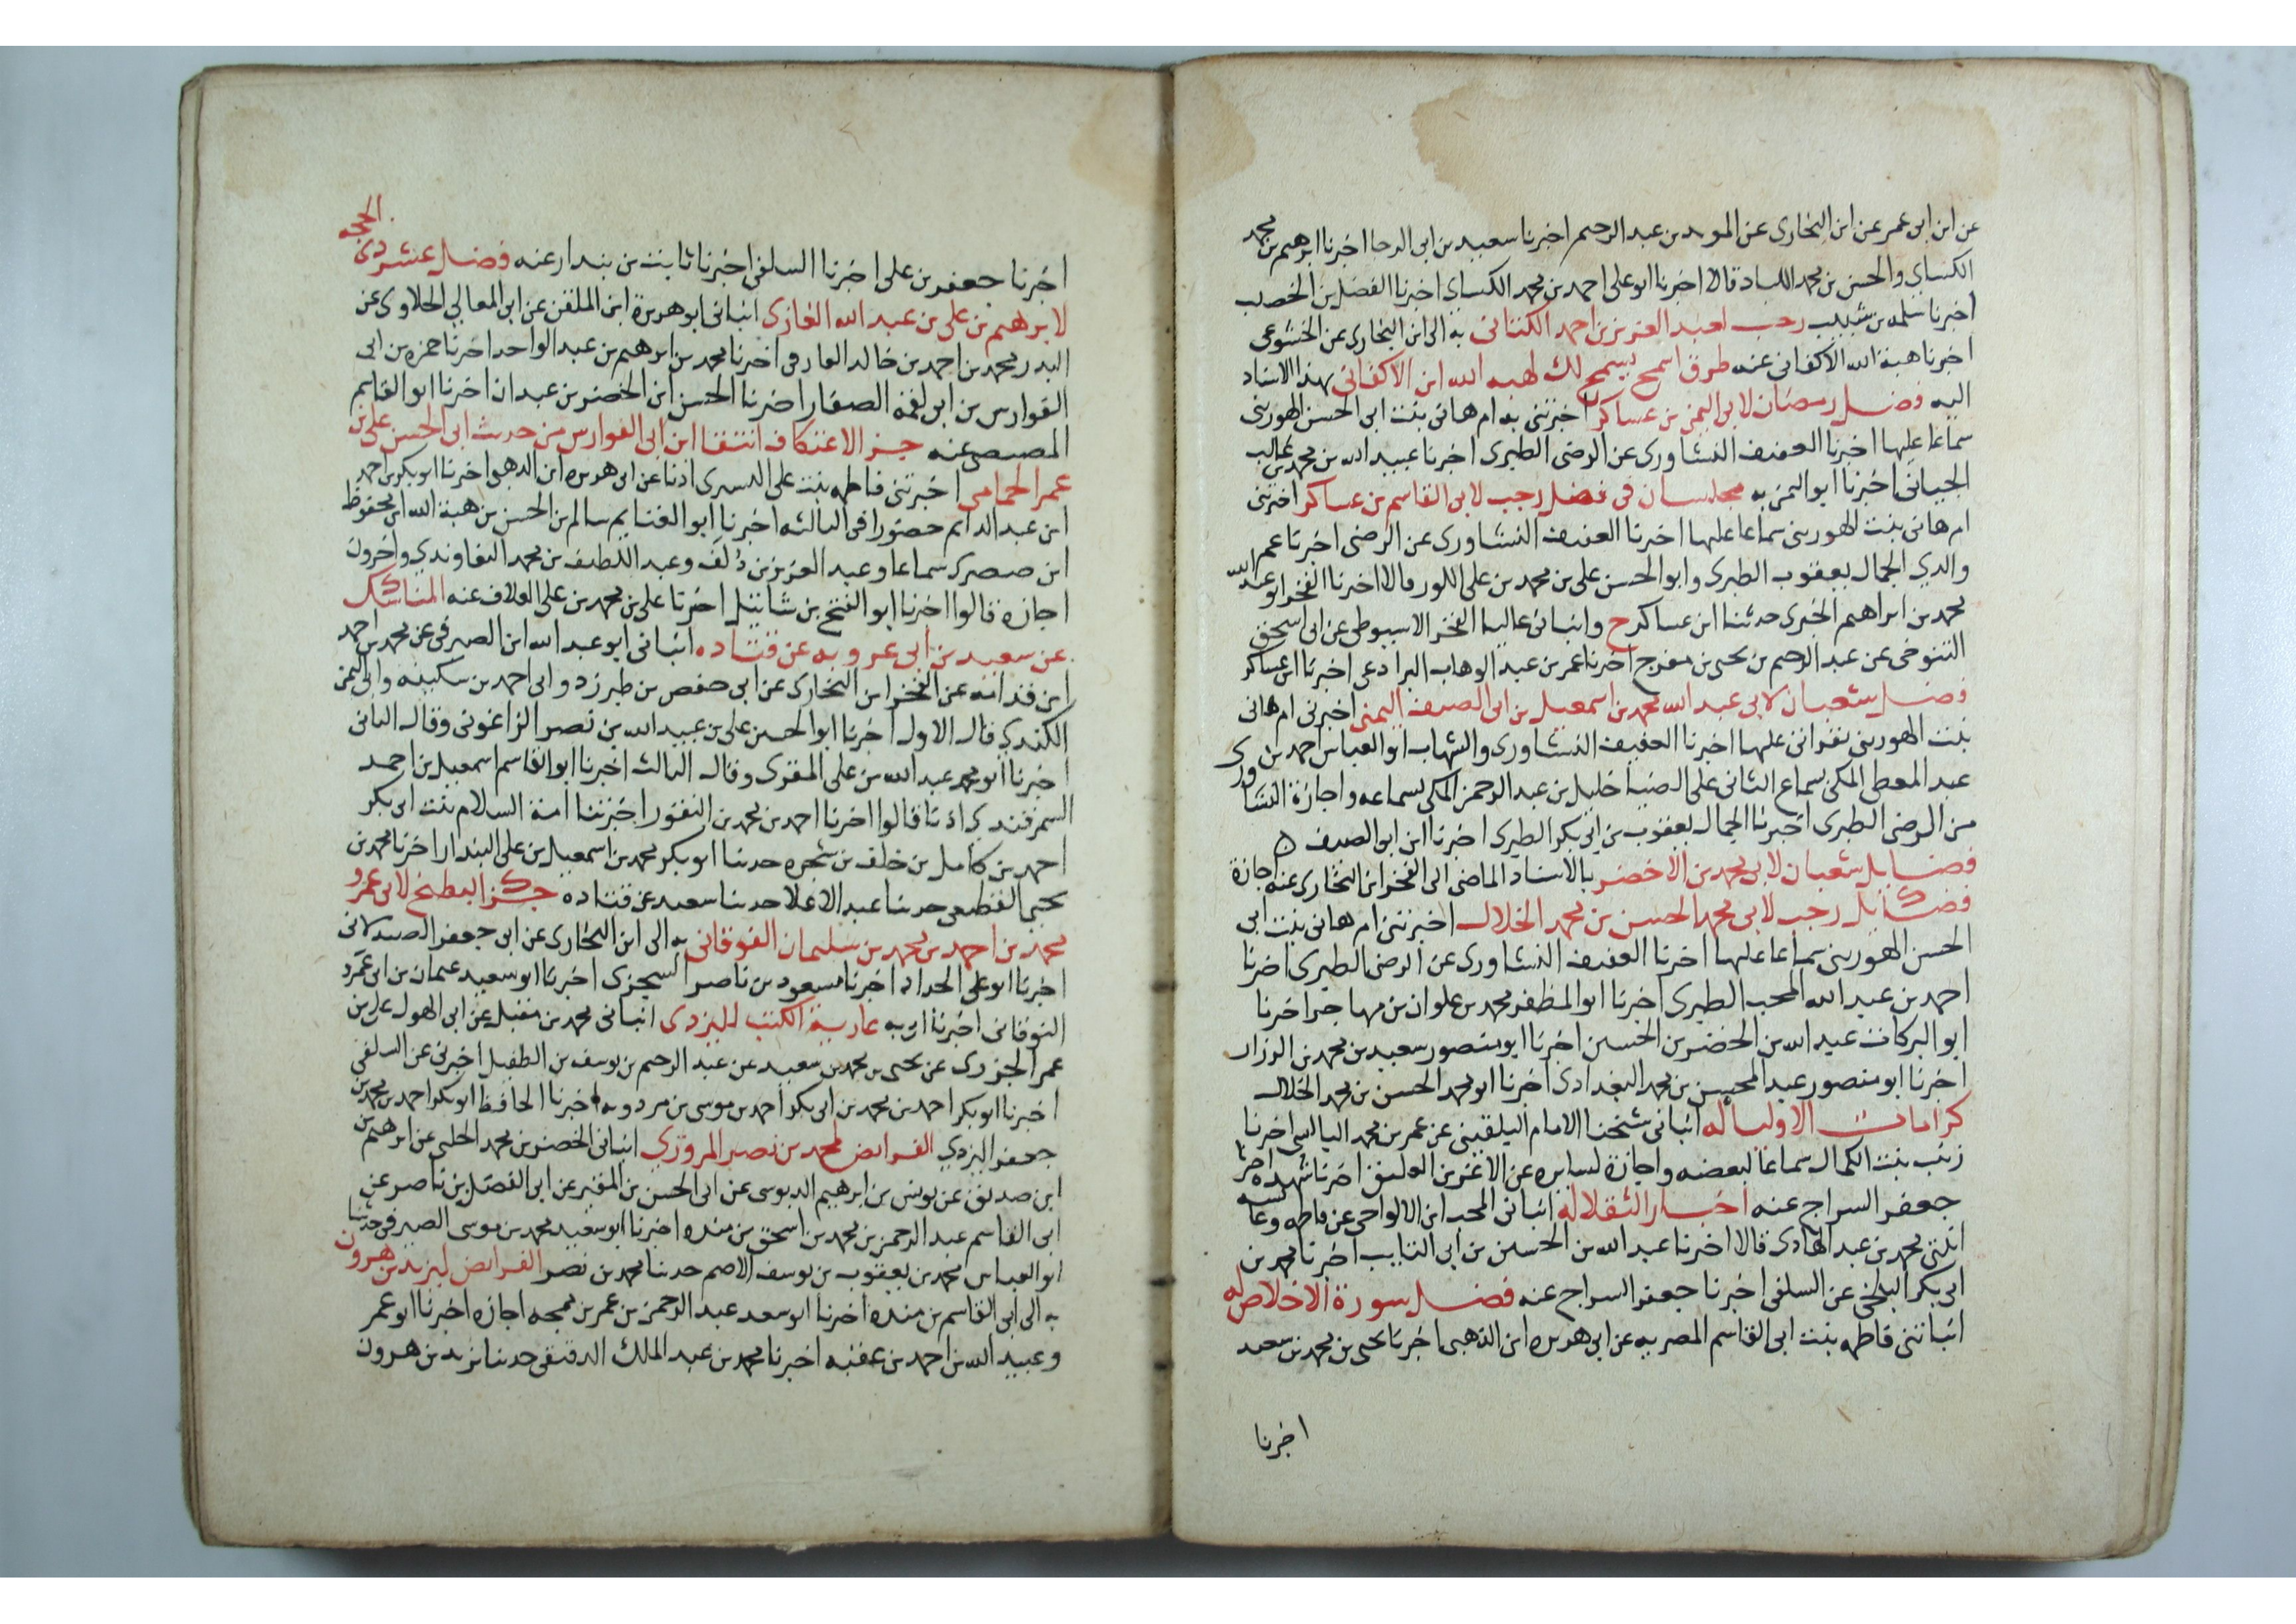 عن ابن ابى عمر عن ابن البخارى عن المويد بن عبد الرحيم اخبرنا سعيد بن ابى الرجا اخبرنا ابرهيم بن محمد
الكسايي والحسن بن محمد اللباد قالا اخبرنا ابو على احمد بن محمد الكساى اخبرنا الفضل بن الخصيب
اخبرنا سلمه بن شبيب رجب لعبد العزيز بن احمد الكتانى به الى ابن البخارى عن الخشوعى
اخبرنا هبة الله الاكفانى عنه طرق اسمح يسمح لك لهبه الله ابن الاكفانى بهذا الاسناد
اليه فضل رمضان لابى اليمن بن عساكر اخبرتنى به ام هانى بنت ابى الحسن الهورينى
سماعا عليها اخبرنا العفيف النشاورى عن الرضى الطبرى اخبرنا عبيد الله بن محمد بن غالب
الجيانى اخبرنا ابو اليمن به مجلسان فى فضل رجب لابى القاسم بن عساكر اخبرتنى
ام هانى بنت الهورينى سماعا عليها اخبرنا العفيف النشاورى عن الرضى اخبرنا عم
والدي الجمال يعقوب الطبرى وابو الحسن على بن محمد بن على اللور قالا اخبرنا الفخر ابو عبد الله
محمد بن ابراهيم الخبرى حدثنا ابن عساكر ح وانبانى عاليا الفخر الاسيوطى عن ابى اسحق
التنوخى عن عبد الرحيم بن يحيى بن مفرج اخبرنا عمر بن عبد الوهاب البرادعى اخبرنا ابن عساكر
فضل شعبان لابى عبد الله محمد بن اسمعيل بن ابى الصيف اليمنى اخبرتنى ام هانى
بنت الهورينى بقرائتى عليها اخبرنا العفيف النشاورى والشهاب ابو العباس احمد بن
عبد المعطى المكى بسماع الثانى على الضيا خليل بن عبد الرحمن المكى بسماعه واجازة النشاورى
من الرضى الطبرى اخبرنا الجمال يعقوب بن ابى بكر الطبرى اخبرنا ابن ابى الصيف ه
فضايل شعبان لابى محمد بن الاخضر بالاسناد الماضى الى الفخر ابن البخارى عنه اجازة
فضايل رجب لابى محمد الحسن بن محمد الخلال اخبرتنى ام هانى بنت ابى
الحسن الهورينى سماعا عليها اخبرنا العفيف النشاورى عن الرضى الطبرى اخبرنا
احمد بن عبد الله المحب الطبرى اخبرنا ابو المظفر محمد بن علوان بن مهاجر اخبرنا
ابو البركات عبد الله بن الخضر بن الحسين اخبرنا ابو منصور سعيد بن محمد بن الرزاز
اخبرنا ابو منصور عبد المحسن بن محمد البغدادى اخبرنا ابو محمد الحسن بن محمد الخلال
كرامات الاوليا له انبانى شيخنا الامام البلقينى عن عمر بن محمد البالسى اخبرنا
زينب بنت الكمال سماعا لبعضه واجازة لسايره عن الاعز بن العليق اخبرنا شهده اخبرنا
جعفر السراج عنه اخبار الثقلا له انبانى المحب ابن الالواحى عن فاطمه وعايشه
ابنتى محمد بن عبد الهادى قالا اخبرنا عبد الله بن الحسين بن ابى التايب اخبرنا محمد بن
ابى بكر البلخى عن السلفى اخبرنا جعفر السراج عنه فضل سورة الاخلاص له
انباتنى فاطمه بنت ابى القاسم المصريه عن ابى هريره ابن الذهبى اخبرنا يحيى بن محمد بن سعد
اخبرنا
اخبرنا جعفر بن على اخبرنا السلفى اخبرنا ثابت بن بندار عنه فضل عشر ذى الحجه
لابرهيم بن على بن عبد الله الغازى انبانى ابو هريرة ابن الملقن عن ابى المعالي الحلاوى عن
البدر محمد بن احمد بن خالد الفارقى اخبرنا محمد بن ابرهيم بن عبد الواحد اخبرنا حمزه بن ابى
الفوارس بن ابى لقمه الصفار اخبرنا الحسن ابن الخضر بن عبدان اخبرنا ابو القاسم
المصيصى عنه جز الاعتكاف انتقا ابن ابى الفوارس من حديث ابى الحسن على بن
عمر الحمامى اخبرتنى فاطمه بنت على اليسرى اذنا عن ابى هريره ابن الذهبى اخبرنا ابو بكر بن احمد
ابن عبد الدايم حضورا فى الثالثه اخبرنا ابو الغنايم سالم بن الحسن بن هبة الله ابن محفوظ
ابن صصرى سماعا وعبد العزيز بن دُلَف وعبد اللطيف بن محمد التعاوندي واخرون
اجازة قالوا اخبرنا ابو الفتح بن شاتيل اخبرنا على بن محمد بن على العلاف عنه المناسك
عن سعيد بن ابى عروبه عن قتاده انبانى ابو عبد الله ابن الصيرفى عن محمد بن احمد
ابن قدامه عن الفخر ابن البخارى عن ابى حفص بن طبرزد وابى احمد بن سكينه وابى اليمن
الكندي قال الاول اخبرنا ابو الحسن على بن عبيد الله بن نصر الزاغونى وقال الثانى
اخبرنا ابو محمد عبد الله بن على المقرى وقال الثالث اخبرنا ابو القاسم اسمعيل بن احمد
السمرقندى اذنا قالوا اخبرنا احمد بن محمد بن النقور اخبرتنا امة السلام بنت ابى بكر
احمد بن كامل بن خلف بن شجره حدثنا ابو بكر محمد بن اسمعيل بن على البندار اخبرنا محمد بن
يحيى القطعى حدثنا عبد الاعلا حدثنا سعيد عن قتاده جز البطيخ لابى عمرو
محمد بن احمد بن محمد بن سليمان النوقانى به الى ابن البخارى عن ابى جعفر الصيدلانى
اخبرنا ابو على الحداد اخبرنا مسعود بن ناصر السجزى اخبرنا ابو سعيد عثمان بن ابى عمرو
النوقانى اخبرنا ابى به عارية الكتب لليزدى انبانى محمد بن مقبل عن ابى الهول على بن
عمر الجزرى عن يحيى بن محمد بن سعيد عن عبد الرحيم بن يوسف بن الطفيل اخبرنى عن السلفى
اخبرنا ابو بكر احمد بن محمد بن ابى بكر احمد بن موسى بن مردويه اخبرنا الحافظ ابو بكر احمد بن محمد بن
جعفر اليزدي الفرائض لمحمد بن نصر المروزي انبانى الخضر بن محمد الحلبى عن ابرهيم بن
ابن صديق عن يونس بن ابرهيم الدبوسى عن ابى الحسن بن المقير عن ابى الفضل بن ناصر عن
ابى القاسم عبد الرحمن بن محمد بن اسحق بن منده اخبرنا ابو سعيد محمد بن موسى الصيرفى حدثنا
ابو العباس محمد بن يعقوب بن يوسف الاصم حدثنا محمد بن نصر الفرائض ليزيد بن هرون
به الى ابى القاسم بن منده اخبرنا ابو سعد عبد الرحمن بن عمر بن يمجه اجازه اخبرنا ابو عمر
وعبيد الله بن احمد بن عقبه اخبرنا محمد بن عبد الملك الدقيقى حدثنا يزيد بن هرون